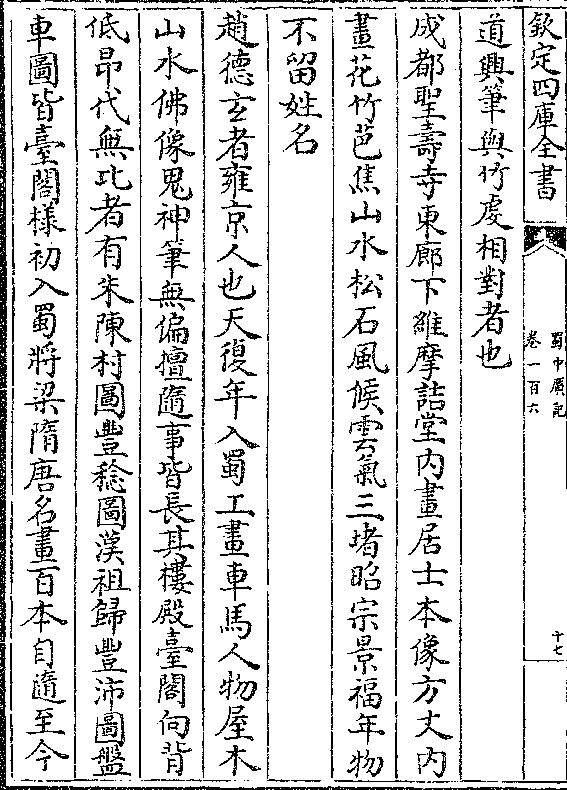 欽定四庫全書
蜀中廣記
卷一百六
十七
道興筆與竹虔相對者也
成都聖壽寺東廊下維摩詰堂内畫居士本像方丈内
畫花竹芭焦山水松石風候雲氣三堵昭宗景福年物
不留姓名
趙德玄者雍京人也天復年入蜀工畫車馬人物屋木
山水佛像鬼神筆無偏擅隨事皆長其樓殿臺閣向背
低昂代無比者有朱陳村圖豐稔圖漢祖歸豐沛圖盤
車圖皆臺閣樣初入蜀將梁隋唐名畫百本自隨至今